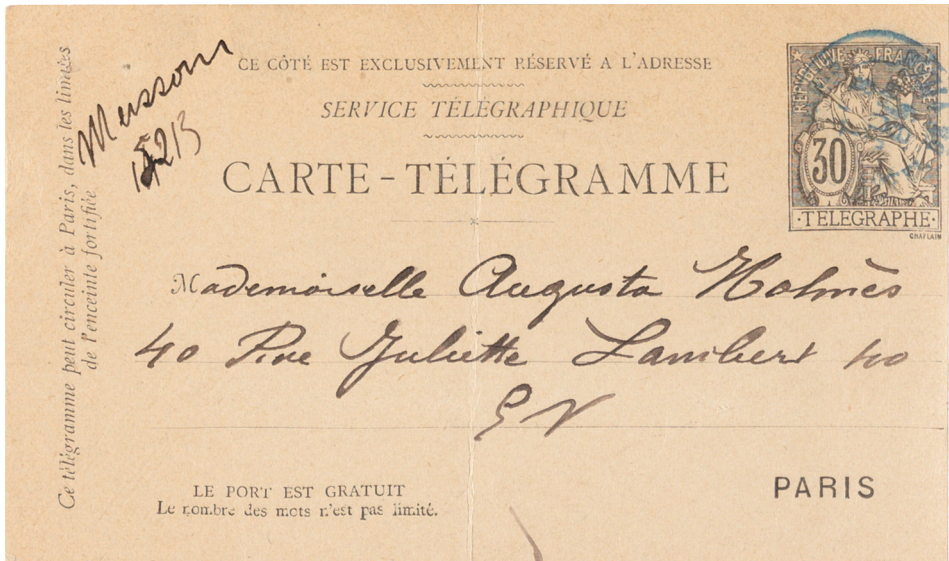 Ce télégramme peut circuler à Paris, dans les limites
de l'enceinte fortifiée
CE CÔTÉ EST EXCLUSIVEMENT RÉSERVÉ A L'ADRESSE
SERVICE TÉLÉGRAPHIQUE
CARTE-TÉLÉGRAMME
REPUBLIQUE FRANCAISE
30
·TELEGRAPHE·
CHAPLAIN
Mademoiselle Augusta Holmès
40 Rue Juliette Lambert 40
EV
PARIS
LE PORT EST GRATUIT
Le nombre des mots n'est pas limité.